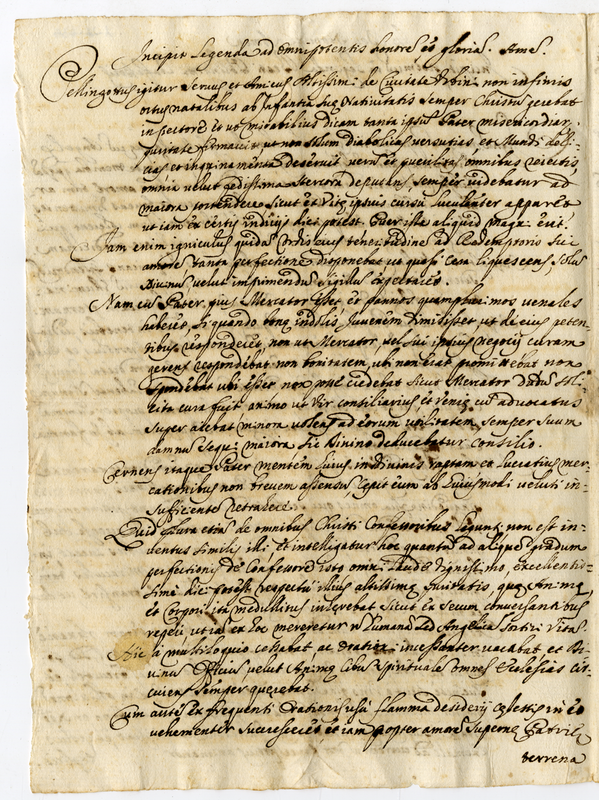 Incipit Legenda ad omnipotentis honorē et gloriā. Amē.
Pellingottus igitur Servus et Amicus Altissimi de Civitate Urbini non infimis
ortus natalibus ab Infantia suę Nativitatis semper Christus gerebat
in pectore et ut mirabilius dicam tanta ipsū Pater misericordiar.
ut non solum diabolicas versutias et Mundi deli-
cias et inquinamēta deseruit verū et puerilitas omnibus reiectis,
omnia velut stercora deputans semper videbatur ad
maiora intendere Sicut et Vitę ipsius cursu luculenter apparet
ut iam ex certis indicijs dici potest. Puer iste aliquid magnū erit.
Iam enim igniculus quidā Cordis eius teneritudine ad Redemptoris sui
amore tanta perfectione disponebat ut quasi Cera liquescens, solus
Divinus velut imprimendus Sigillus expectaret.
Nam cū Pater eius Mercator esset et pannos quamplurimos venales
haberet, si quando bonę indolis Iuvenem dimisisset ut de eius peten-
tibus responderet, non ut Mercator, vel sui ipsius negocij curam
gerens respondebat non bonitatem, ubi non erat promittebat non
spondebat ubi esset non credebat sicut Mercator
cura fuit animo ut Vir consiliarius et cū advocatus
super aiebat minora volens ad eorum utilitatem semper suum
damnū sequi maiora sic Divino deducebatur consilio.
Cernens itaque Pater mentem huius in divinis raptam et lucrativis mer-
cationibus non brevem assensū, cepit eum ab huiusmodi veluti in-
sufficiente retrahere.
Quid plura etsi de omnibus Christi Confessoribus legunt. non est in-
ventus similis illi et intelligatur hoc quantū ad aliquē gradum
perfectionis de Confessore isto omni laude dignissimo, excellentis-
sime dici potest respectu illius altissimę puritatis, quę Animę,
et Corpori ita medullitus inherebat Sicut ex Secum conversantibus
ut iā ex hoc mereretur nō humanā sed Angelicā sortiri Vitā.
Hic à multiloquio cessabat ac orationi incessanter vacabat et Di-
vinū Officiū velut Animę Cibū spirituale omnes Ecclesias cir-
cuiens semper querebat.
Cum autē ex frequenti Orationis usu flamma desiderij cęlestis in eo
vehementer succresceret et iam propter amorē Supernę Patrię
terrena